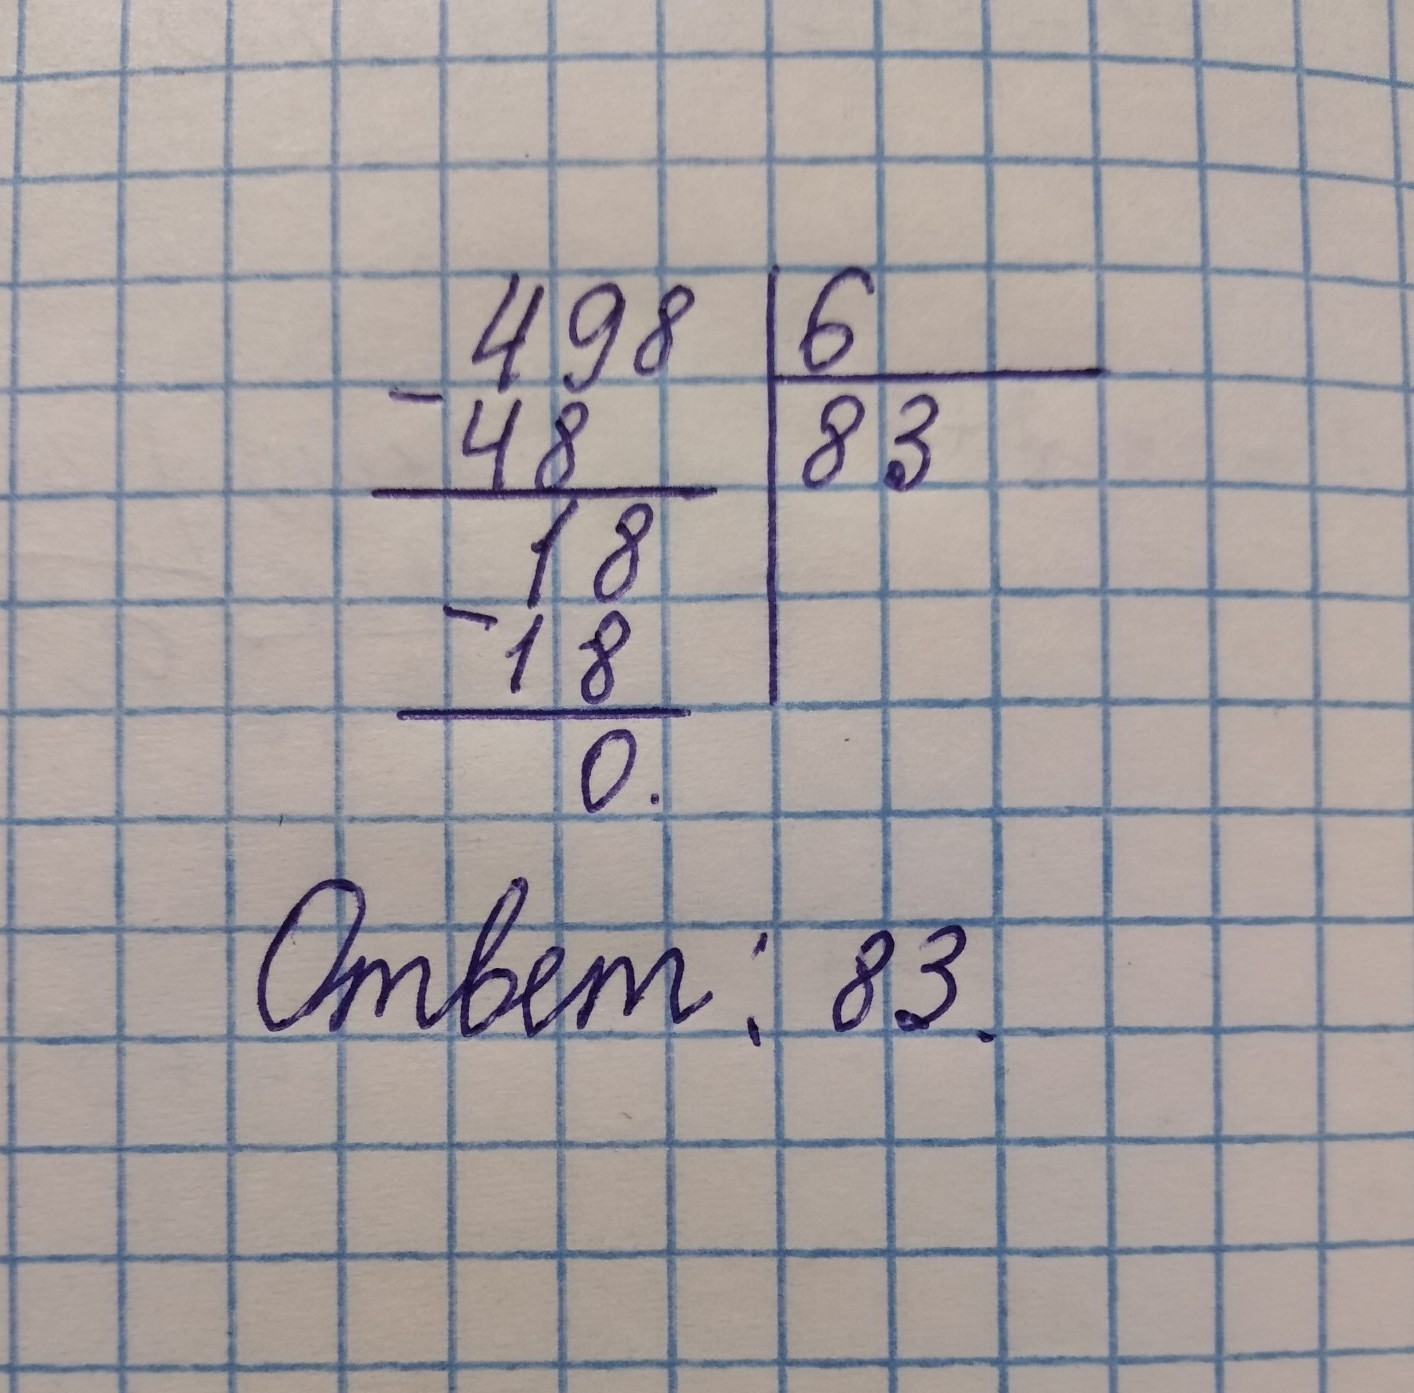 498 | 6
- 48 | 83
18
- 18
0.
Ответ: 83.